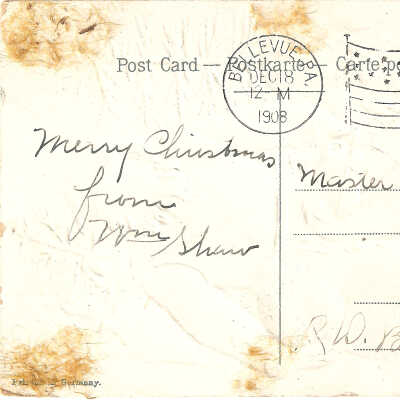 Post Card — Postkarte — Carte po
BELLEVUE PA.
DEC 18
12 - M
1908
Merry Christmas
from
Wm Shaw
Master
R.W. B
Printed in Germany.